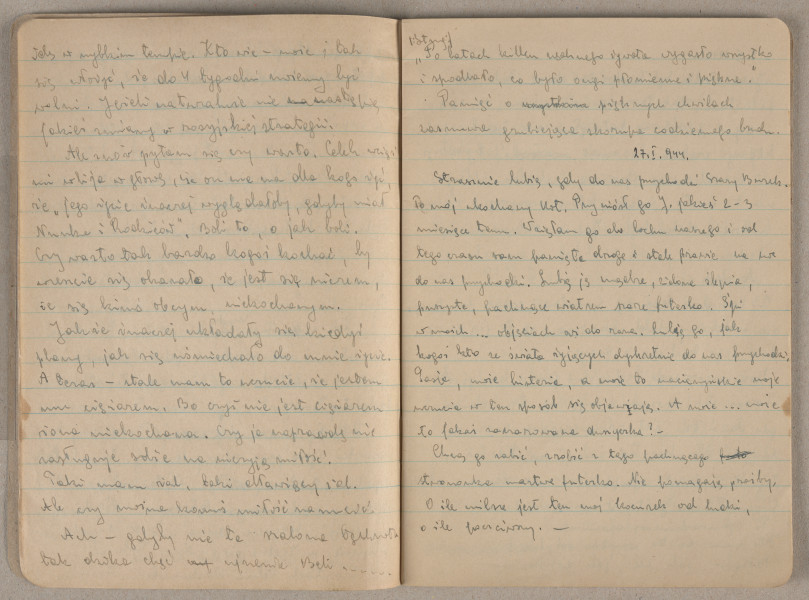 ideą w szybkim tempie. Kto wie – może i tak
się zdarzyć, że do 4 tygodni możemy być
wolni. Jeżeli naturalnie nie
jakieś zmiany w rosyjskiej strategii.
Ale znów pytam się czy warto. Celek
mi wbija w głowę, że on nie ma dla kogo żyć,
że „jego życie inaczej wyglądałoby, gdyby miał
Niuńka i Rodziców". Boli to, o jak boli.
Czy warto tak bardzo kogoś kochać, by
wreszcie się okazało, że jest się niczem,
że się kimś obcym, niekochanym.
Jakże inaczej układały się kiedyś
plany, jak się uśmiechało do mnie życie.
A teraz – stale mam to uczucie, że jestem
mu ciężarem. Bo czyż nie jest ciężarem
żona niekochana. Czy ja naprawdę nie
zasługuję sobie na niczyją miłość.
Taki mam żal, taki dławiący żal.
Ale czy można komuś miłość narzucić.
Ach – gdyby nie ta szalona
tak dzika chęć ujrzenia Beli .....
„Po latach kilku wspólnego życia wygasło wszystko
i spopielało, co było ongi płomienne i piękne."
Pamięć o pięknych chwilach
zasnuwa grubiejąca skorupa codziennego brudu.
27.I.944.
Strasznie lubię, gdy do nas przychodzi Szary Burek.
To mój ukochany kot. Przyniósł go J. jakieś 2–3
miesiące temu. Wzięłam go do bochu naszego i od
tego czasu sam pamięta drogę i stale prawie na noc
do nas przychodzi. Lubię te mądre, zielone ślepia,
puszyste, pachnące wiatrem szare futerko. Śpi
w moich ... objęciach aż do rana. Lubię go, jak
kogoś kto ze świata żyjących dyskretnie do nas przychodzi.
Pasja, może histeria, a może to macierzyńskie moje
uczucia w ten sposób się objawiają. A może ... może
to jakaś zaczarowana duszyczka? –
Chcą go zabić, zrobić z tego pachnącego
stworzonka martwe futerko. Nie pomagają prośby.
O ile milsze jest ten mój koteczek od ludzi,
o ile poczciwszy. –